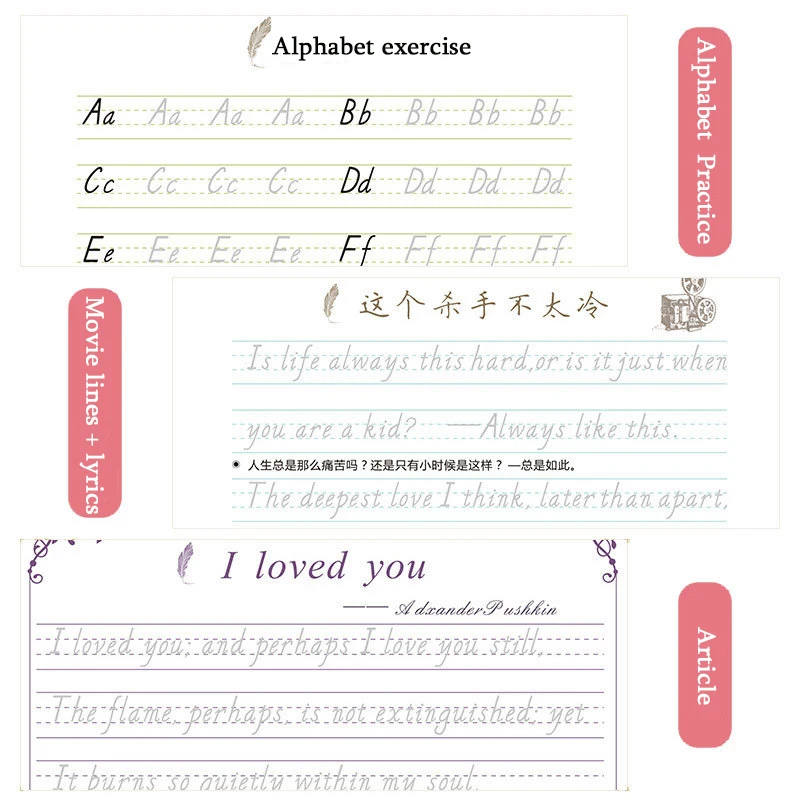 Alphabet exercise
Aa Aa Aa Aa Bb Bb Bb Bb
Cc Cc Cc Cc Dd Dd Dd Dd
Ee Ee Ee Ee Ff Ff Ff Ff
Alphabet Practice
Movie lines + lyrics
这个杀手不太冷
Is life always this hard,or is it just when
you are a kid? —Always like this.
人生总是那么痛苦吗？还是只有小时候是这样？—总是如此。
The deepest love I think, later than apart,
I loved you
—— AdxanderPushkin
I loved you; and perhaps I love you still,
The flame, perhaps, is not extinguished; yet
It burns so quietly within my soul,
Article